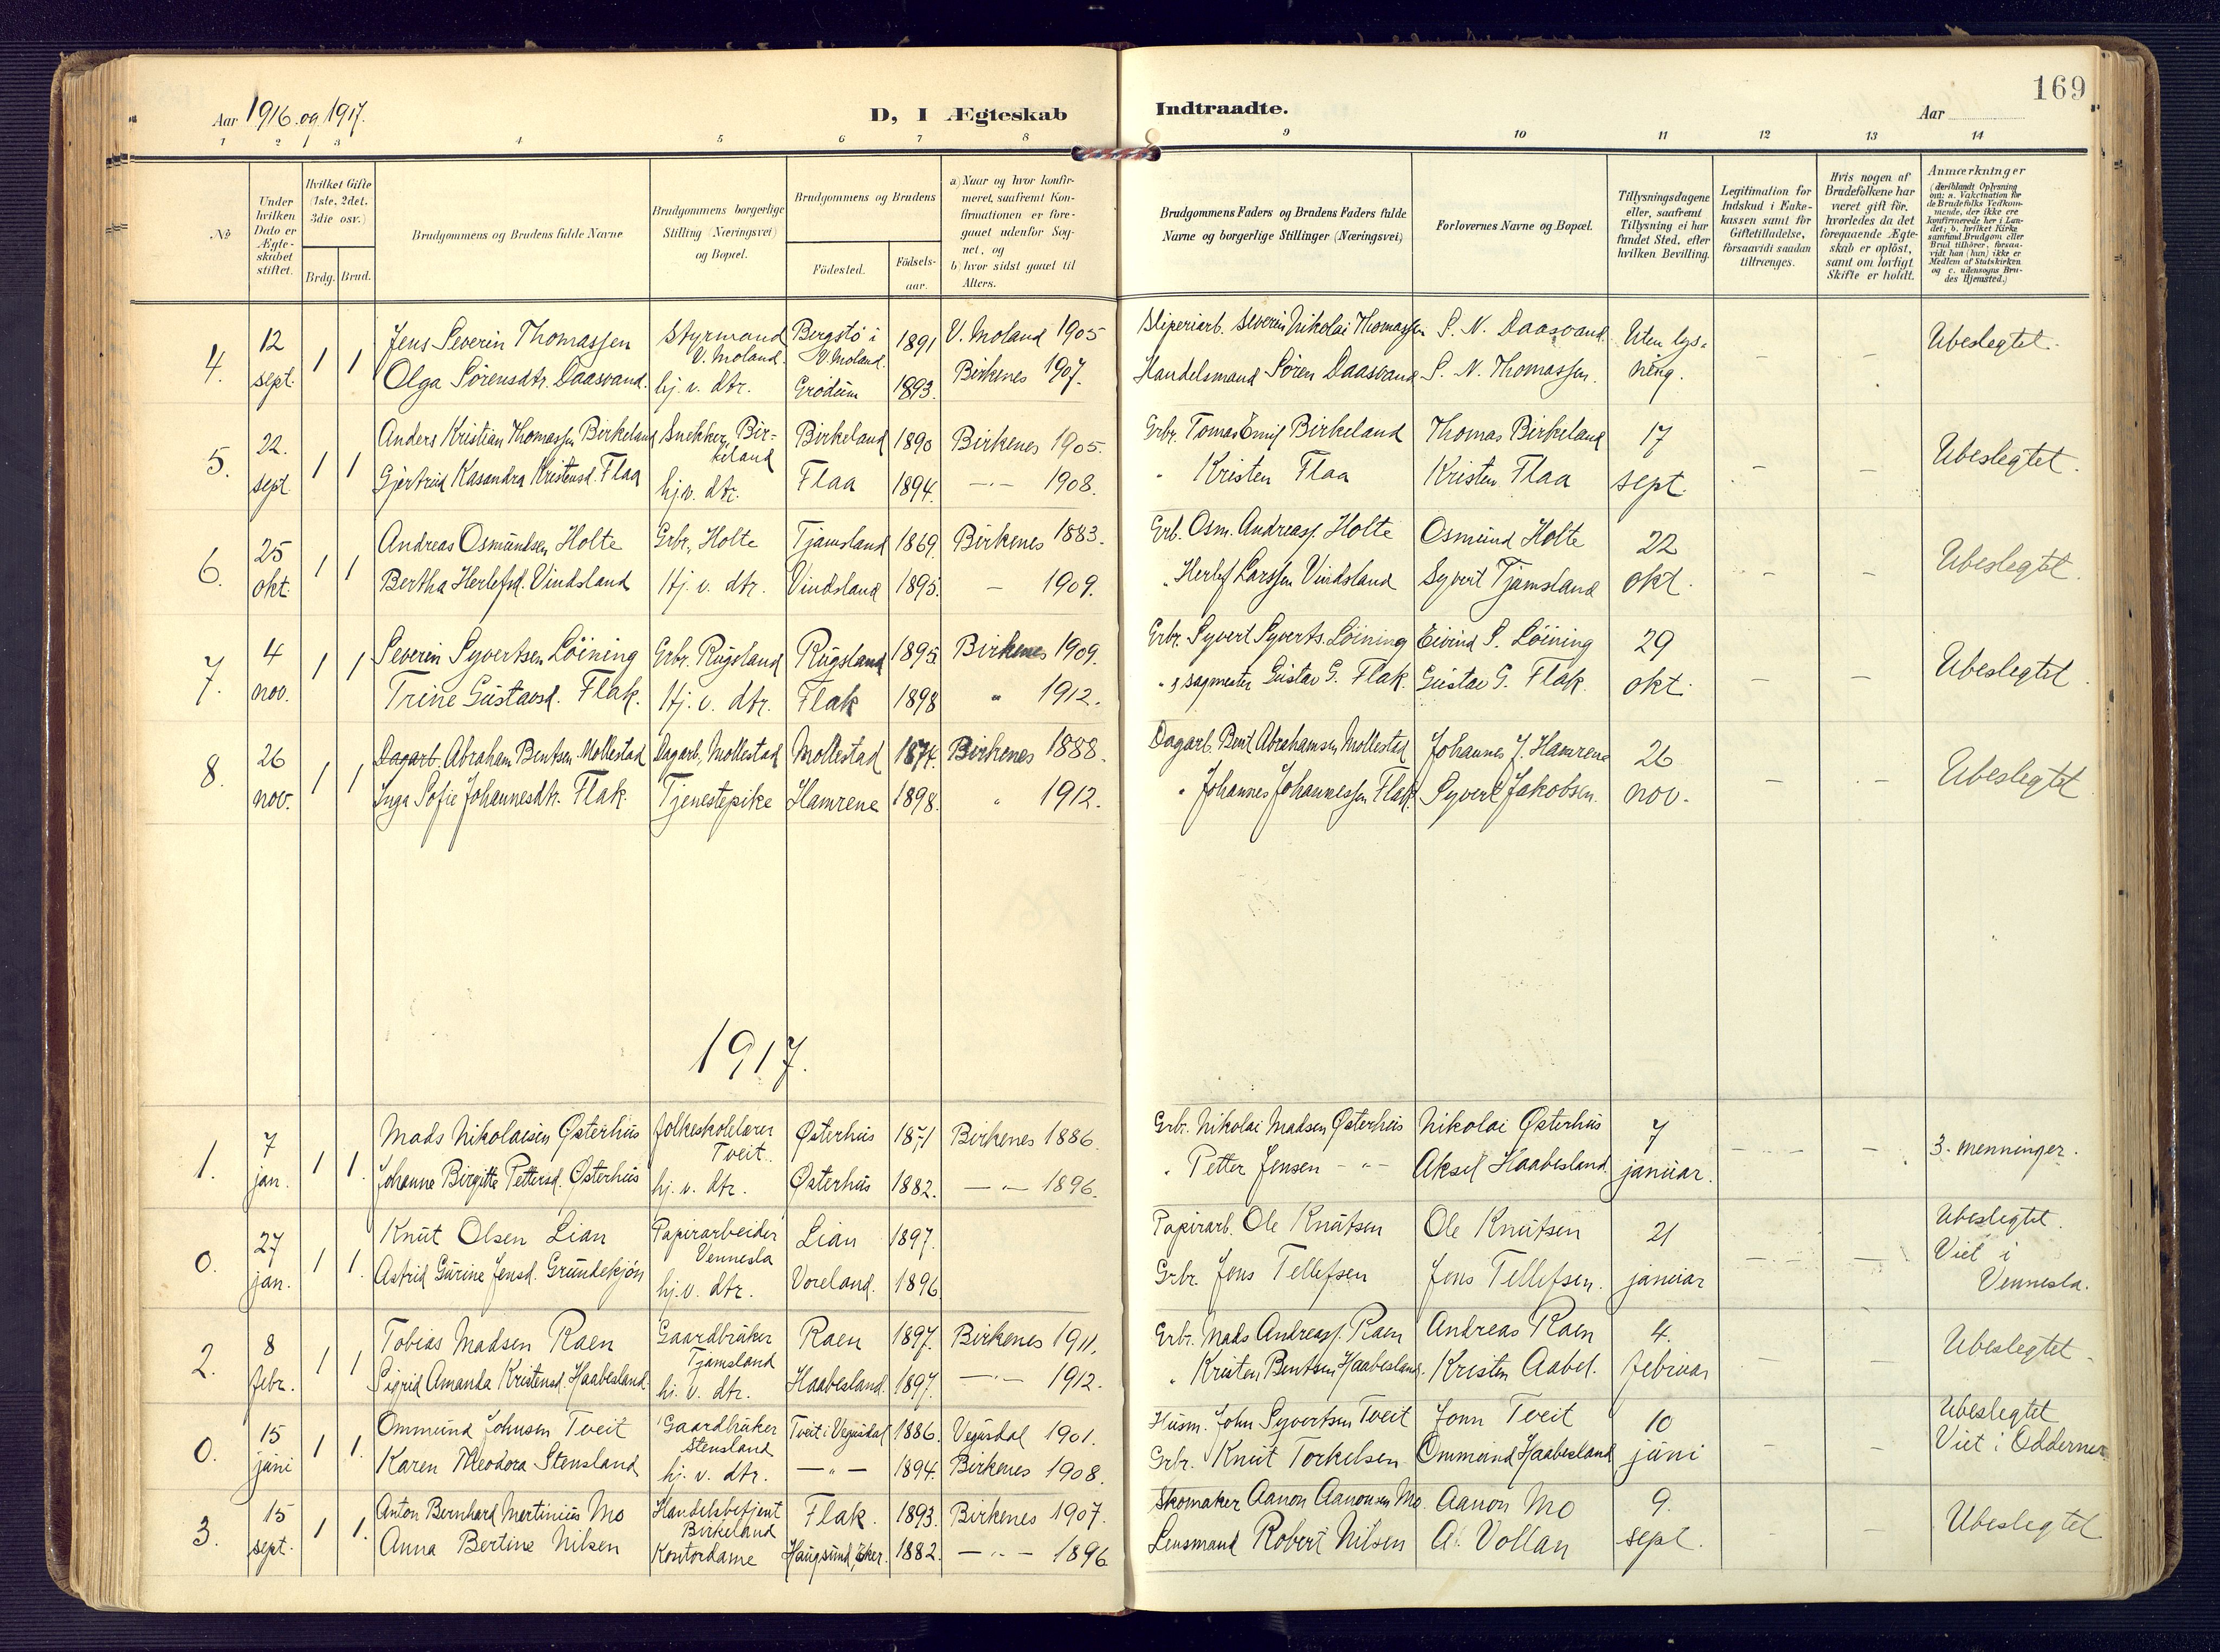 169
Aar 1916 og 1917.
D, I Ægteskab
Indtraadte.
Aar
1 2 3 4 5 6 7 8 9 10 11 12 13 14
No
Under hvilken Dato er Ægteskabet stiftet.
Hvilket Gifte (1ste, 2det, 3die osv.)
Brdg. Brud.
Brudgommens og Brudens fulde Navne
Brudgommens borgerlige Stilling (Næringsvei) og Bopæl.
Brudgommens og Brudens
Födested.
Födselsaar.
a) Naar og hvor konfirmeret, saafremt Konfirmationen er foregaaet udenfor Sognet, og
b) hvor sidst gaaet til Alters.
Brudgommens Faders og Brudens Faders fulde Navne og borgerlige Stillinger (Næringsvei)
Forlovernes Navne og Bopæl.
Tillysningsdagene eller, saafremt Tillysning ei har fundet Sted, efter hvilken Bevilling.
Legitimation for Indskud i Enkekassen samt for Giftetilladelse, forsaavidt saadan tiltrænges.
Hvis nogen af Brudefolkene har været gift før, hvorledes da det foregaaende Ægteskab er opløst, samt om lovligt Skifte er holdt.
Anmærkninger
(deriblandt Oplysning om: a. Vakcination for de Brudefolks Vedkommende, der ikke ere konfirmerede her i Landet; b. hvilket Kirkesamfund Brudgom eller Brud tilhører, forsaavidt han (hun) ikke er Medlem af Statskirken og c. udensogns Brudes Hjemsted.)
4. 12 sept. 1 1 Jens Severin Thomassen Styrmand V. Moland. Bergstø i V. Moland. 1891 V. Moland 1905 Sliperiarb. Severin Nikolai Thomassen S. N. Daasvand. Uten lys- - - Ubeslegtet.
Olga Sørensdtr. Daasvand. hj. v. dtr. Grødum 1893. Birkenes 1907. Handelsmand Søren Daasvand S. N. Thomassen. ning.
5. 22. sept 1 1 Anders Kristian Thomassen Birkeland Snekker, Birkeland Birkeland 1890 Birkenes 1905. Grbr. Tomas Emil Birkeland Thomas Birkeland 17 - - Ubeslegtet.
Gjertrud Kasandra Kristensd. Flaa hj.v. dtr. Flaa 1894. -"- 1908. " Kristen Flaa Kristen Flaa sept.
6. 25 okt. 1 1 Andreas Osmundsen Holte Grbr., Holte Tjamsland 1869. Birkenes 1883. Grb. Osm. Andreass. Holte Osmund Holte 22 - - Ubeslegtet.
Bertha Herlefsd. Vindsland Hj. v. dtr. Vindsland 1895. - 1909. " Herlef Larssen Vindsland Syvert Tjamsland okt.
7. 4 nov. 1 1 Severin Syvertsen Löining Grbr. Rugsland Rugsland 1895. Birkenes 1909. Grbr. Syvert Syverts. Löining Eivind S. Löining 29 - - Ubeslegtet.
Trine Gustavsd. Flak. Hj. v. dtr. Flak 1898 " 1912. " sagmester Gustav G. Flak. Gustav G. Flak. okt.
8. 26 nov. 1 1 Dagarb. Abraham Bentsen Mollestad Dagarb., Mollestad Mollestad 1874. Birkenes 1888. Dagarb. Bent Abrahamsen Mollestad Johannes J. Hamrene 26 - - Ubeslegtet
Inga Sofie Johannesdtr. Flak. Tjenestepike Hamrene 1898. " 1912. " Johannes Johannessen Flak Syvert Jakobsen. nov.
1917.
1. 7 jan. 1 1. Mads Nikolaisen Østerhus folkeskolelærer Tveit. Østerhus 1871 Birkenes 1886. Grbr. Nikolai Madsen Østerhus Nikolai Østerhus 7 - - - 3-menninger.
Johanne Birgitte Pettersd. Østerhus hj. v. dtr. Østerhus 1882. -"- 1896. " Petter Jensen -"- Aksel Haabesland. januar.
0. 27 jan. 1 1. Knut Olsen Lian Papirarbeider Vennesla Lian 1897. Papirarb. Ole Knutsen Ole Knutsen 21 - - Ubeslegtet.
Astrid Gurine Jensd. Grundekjøn hj.v. dtr. Voreland. 1896 Grbr. Jens Tellefsen Jens Tellefsen. januar Viet i Vennesla.
2. 8 febr. 1 1 Tobias Madsen Raen Gaardbruker Tjamsland Raen 1897. Birkenes 1911. Grbr. Mads Andreass. Raen Andreas Raen 4. - - Ubeslegtet
Sigrid Amanda Kristensd. Haabesland hj. v. dtr. Haabesland. 1897. -"- 1912. " Kristen Bentsen Haabesland. Kristen Aabel. februar
0. 15 juni 1 1. Ommund Johnsen Tveit Gaardbruker Stensland Tveit i Vegusdal 1886. Vegusdal 1901. Husm. John Syvertsen Tveit Jonn Tveit 10 - - Ubeslegtet
Karen Theodora Stensland hj. v. dtr. -"- 1894. Birkenes 1908. Grbr. Knut Torkelsen Ommund Haabesland juni Viet i Oddernes
3. 15 sept. 1 1. Anton Bernhard Martinius Mo Handelsbetjent Birkeland Flak. 1893. Birkenes 1907. Skomaker Aanon Aanonsen Mo. Aanon Mo 9. - - Ubeslegtet
Anna Bertine Nilsen Kontordame Haugsund, Eker. 1882. -"- 1896 Lensmand Robert Nilsen A. Vollan sept.